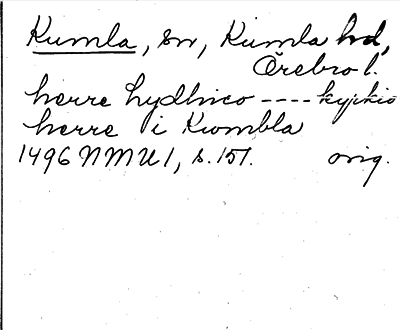 Kumla, sn, Kumla hd,
Örebro l.
herre lydhico ---- kyrkio
herre i Kwmbla
1496 NMU 1, s. 151. orig.